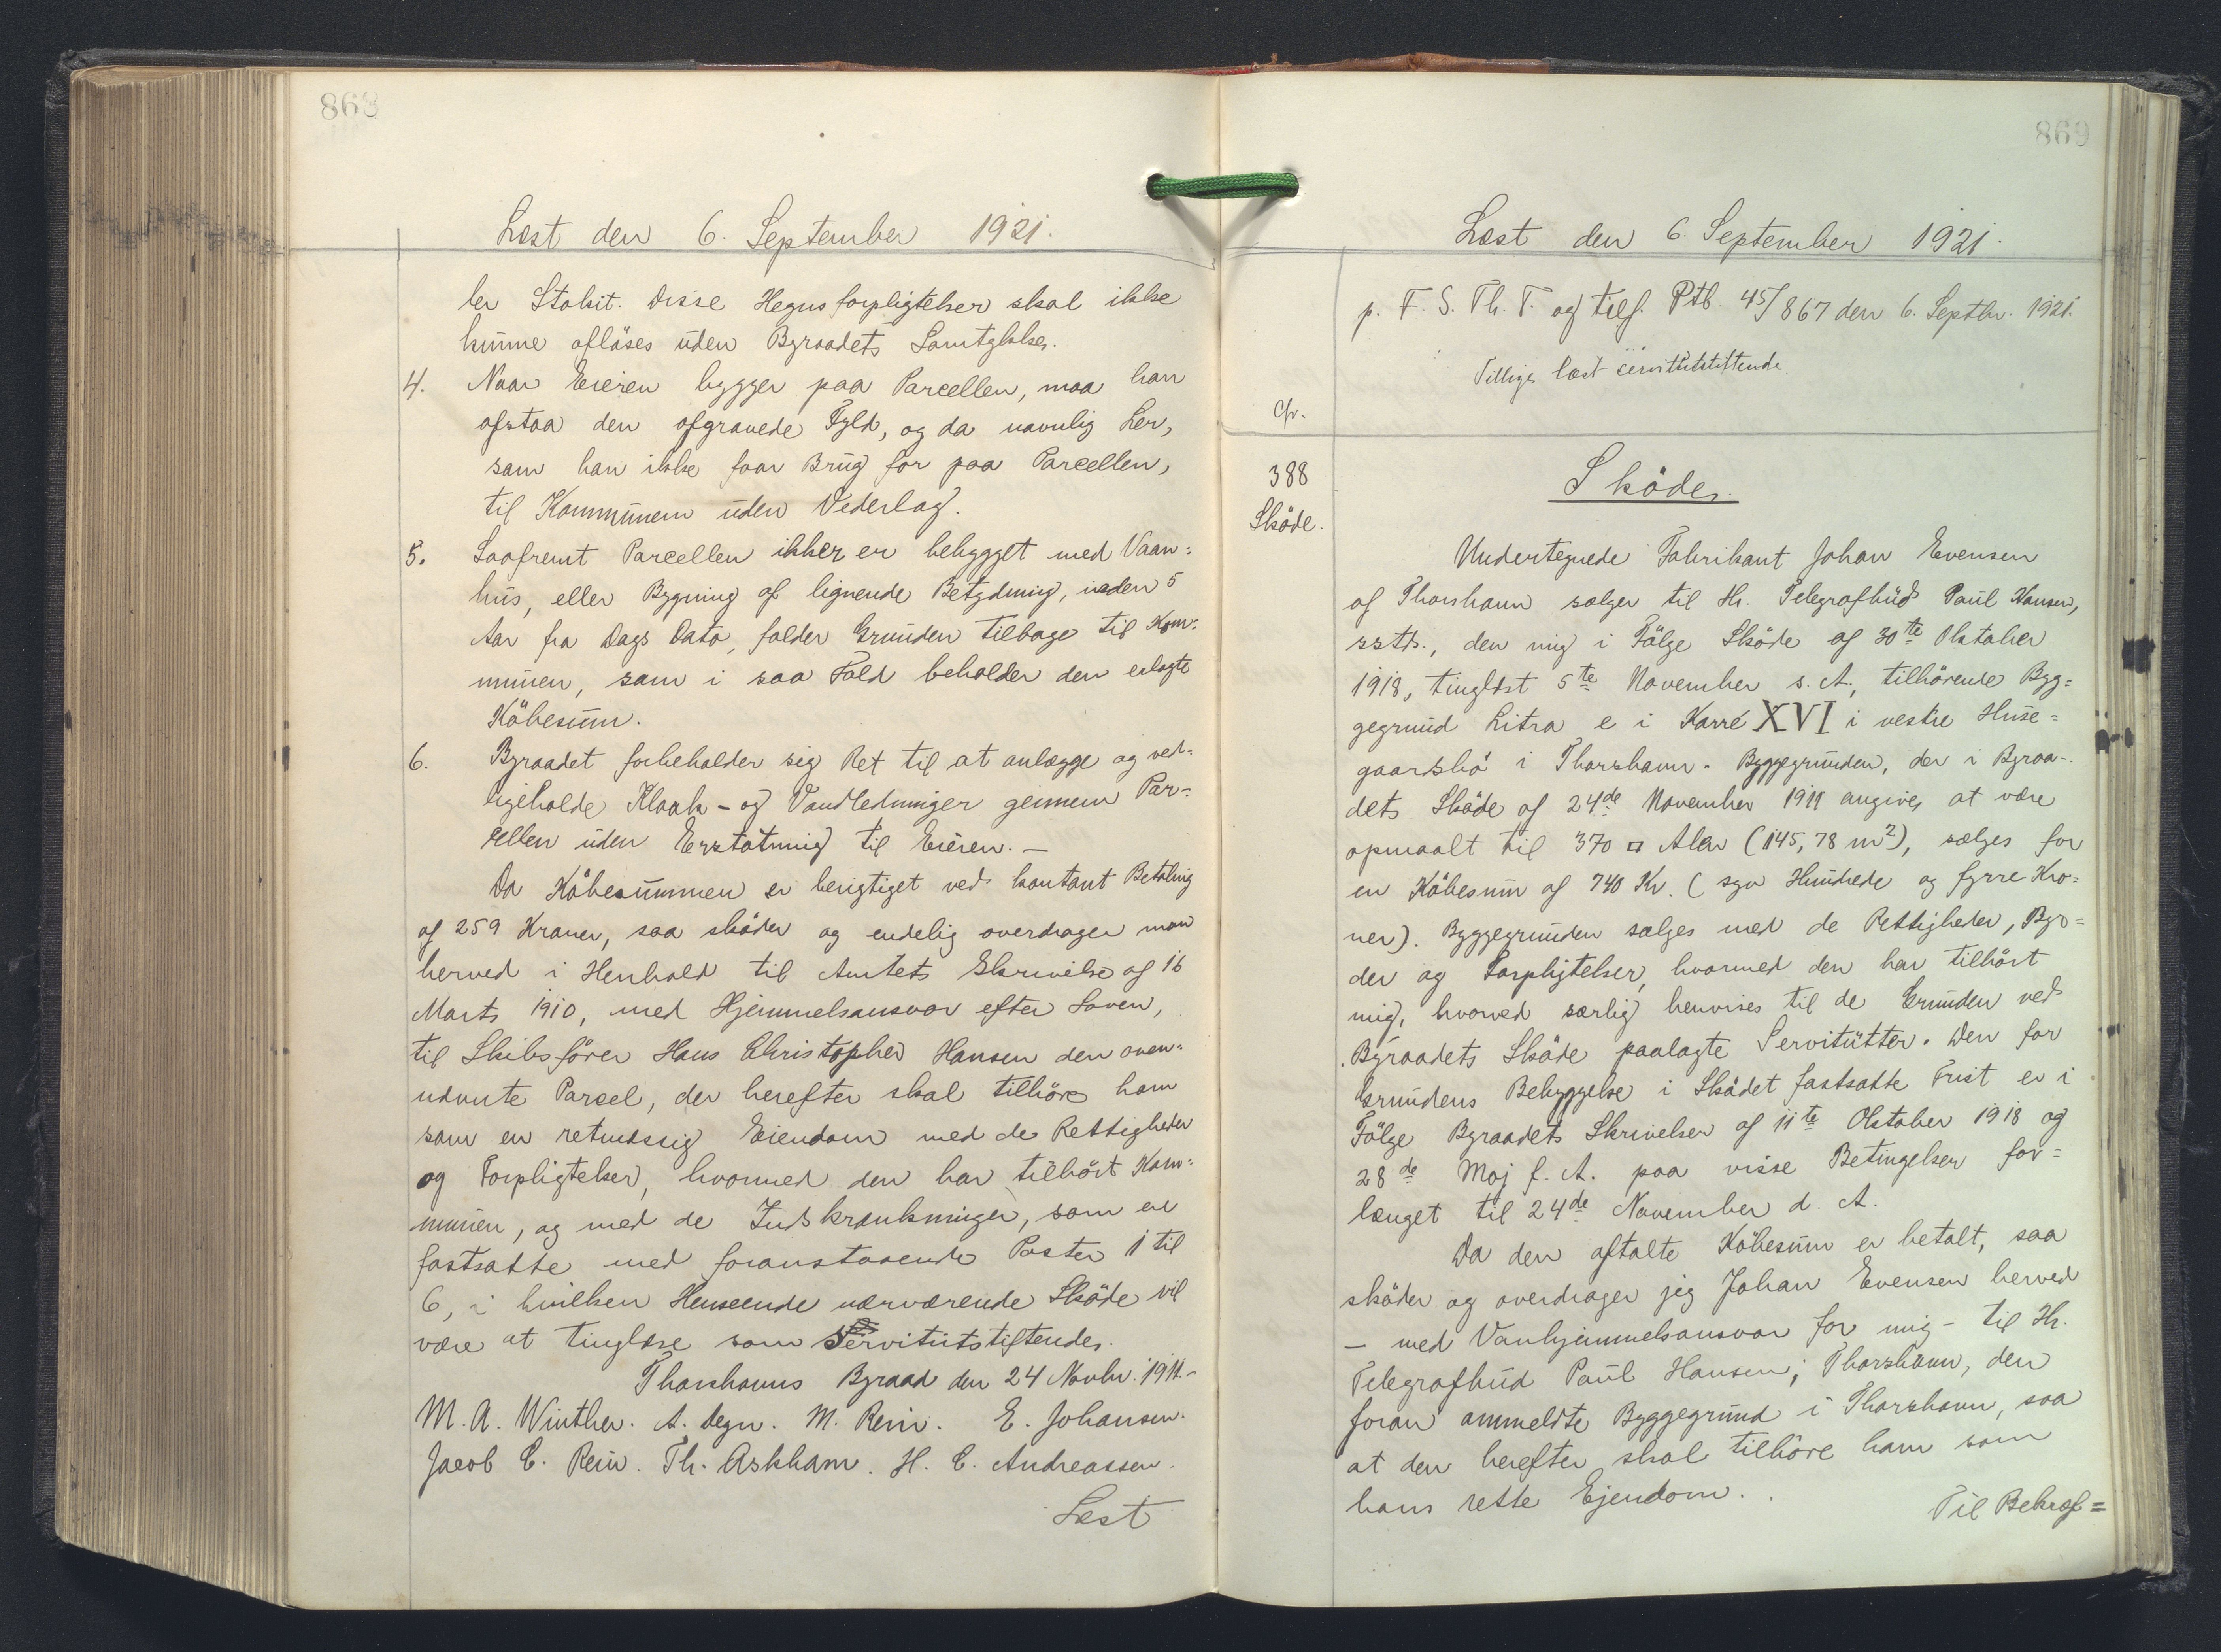 868
Læst den 6. September 1921.
ler Stakit. Disse Hegnsforpligtelser skal ikke
kunne aflöses uden Byraadets Samtykke.
4. Naar Eieren bygger paa Parcellen, maa han
afstaa den afgravede Fyld, og da navnlig Ler,
som han ikke faar Brug for paa Parcellen,
til Kommunen uden Vederlag.
5. Saafremt Parcellen ikke er bebygget med Vaan-
hus, eller Bygning af lignende Betydning, inden 5
Aar fra Dags Dato, falder Grunden tilbage til Kom-
munen, som i saa Fald beholder den erlagte
Köbesum.
6. Byraadet forbeholder sig Ret til at anlægge og ved-
ligeholde Kloak- og Vandledninger gennem Par-
cellen uden Erstatning til Eieren. —
Da Köbesummen er berigtiget ved kontant Betaling
af 259 Kroner, saa sköder og endelig overdrager man
herved i Henhold til Amtets Skrivelse af 16
Marts 1910, med Hjemmelsansvar efter Loven,
til Skibsförer Hans Christopher Hansen den oven-
nævnte Parcel, der herefter skal tilhöre ham
som en retmæssig Eiendom med de Rettigheder
og Forpligtelser, hvormed den har tilhört Kom-
munen, og med de Indskrænkninger, som er
fastsatte med foranstaaende Poster 1 til
6, i hvilken Henseende nærværende Sköde vil
være at tinglæse som Servitutstiftende.
Thorshavns Byraad den 24 Novbr. 1911.-
M. A. Winther. A. Degn. M. Rein. E. Johansen.
Jacob C. Rein. Th. Askham. H. C. Andreassen.
Læst
869
Læst den 6. September 1921.
p. F. S. Th. T. og tilf. Ptb. 45/867 den 6. Septbr. 1921.
Tillige læst servitutstiftende.
Cfr.
388
Sköde.
Sköde.
Undertegnede Fabrikant Johan Evensen
af Thorshavn sælger til Hr. Telegrafbud Paul Hansen,
sstds., den mig i Fölge Sköde af 30te Oktober
1918, tinglæst 5te November s. A., tilhörende Byg=
gegrund Litra e i Karré XVI i vestre Huse=
gaardsbö i Thorshavn. Byggegrunden, der i Byraa-
dets Sköde af 24de November 1911 angives at være
opmaalt til 370 □ Alen (145,78 m²), sælges for
en Köbesum af 740 Kr. (syv Hundrede og fyrre Kro=
ner). Byggegrunden sælges med de Rettigheder, Byr=
der og Forpligtelser, hvormed den har tilhört
mig, hvorved særlig henvises til de Grunden ved
Byraadets Sköde paalagte Servitutter. Den for
Grundens Bebyggelse i Sködet fastsatte Frist er i
Fölge Byraadets Skrivelser af 11te Oktober 1918 og
28de Maj f. A. paa visse Betingelser for=
længet til 24de November d. A.
Da den aftalte Köbesum er betalt, saa
sköder og overdrager jeg Johan Evensen herved
— med Vanhjemmelsansvar for mig — til Hr.
Telegrafbud Paul Hansen, Thorshavn, den
foran ommeldte Byggegrund i Thorshavn, saa
at den herefter skal tilhöre ham som
hans rette Ejendom.
Til Bekræf=